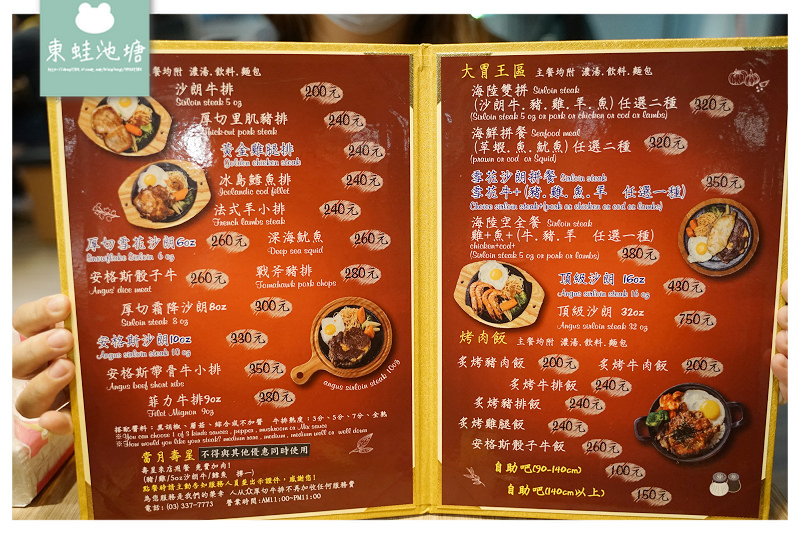 東蛙池塘
主餐均附 濃湯.飲料.麵包
沙朗牛排 200元
Sirloin steak 5 oz
厚切里肌豬排 240元
Thick-cut pork steak
黃金雞腿排 240元
Golden chicken steak
冰島鱈魚排 240元
Icelandic cod fillet
法式羊小排 240元
French lambs steak
厚切雪花沙朗6oz 260元
Snowflake Sirloin 6 oz
深海魷魚 260元
Deep sea squid
安格斯骰子牛 260元
Angus' dice meat
戰斧豬排 280元
Tomahawk pork chops
厚切霜降沙朗8oz 300元
Sirloin steak 8 oz
安格斯沙朗10oz 330元
Angus sirloin steak 10 oz
安格斯帶骨牛小排 350元
Angus beef short ribs
菲力牛排9oz 380元
Filet Mignon 9oz
angus sirloin steak 10oz
搭配醬料：黑胡椒、蘑菇、綜合或不加醬 牛排熟度：3分、5分、7分、全熟
※You can choose 1 of 3 kinds sauces, pepper, mushroom or Mix sauce
※How would you like your steak? medium rare, medium, medium well or well down
當月壽星 不得與其他優惠同時使用
壽星來店用餐 免費加肉！
(豬/雞/5oz沙朗牛/鱈魚 擇一)
點餐時請主動告知服務人員並出示證件，感謝您！
為您服務是我們的榮幸 人从众厚切牛排不再加收任何服務費
電話：(03) 337-7773 營業時間:AM11:00-PM11:00
大胃王區 主餐均附 濃湯.飲料.麵包
海陸雙拼 Sirloin steak
(沙朗牛.豬.雞.羊.魚) 任選二種 320元
(Sirloin steak 5 oz or pork or chicken or cod or lambs)
海鮮拼餐 Seafood meal
(草蝦.魚.魷魚) 任選二種 320元
(prawn or cod or Squid)
雪花沙朗拼餐 Sirloin steak
雪花牛+(豬.雞.魚.羊 任選一種) 350元
(Choice sirloin steak+pork or chicken or cod or lambs)
海陸空全餐 Sirloin steak
雞+魚+(牛.豬.羊 任選一種)
chicken+cod+
(Sirloin steak 5 oz or pork or lambs) 380元
頂級沙朗 16oz 430元
Angus sirloin steak 16 oz
頂級沙朗 32oz 750元
Angus sirloin steak 32 oz
烤肉飯 主餐均附 濃湯.飲料.麵包
炙烤豬肉飯 200元 炙烤牛肉飯 200元
炙烤牛排飯 240元
炙烤豬排飯 240元
炙烤雞腿飯 240元
安格斯骰子牛飯 260元
自助吧(90-140cm) 100元
自助吧(140cm以上) 150元